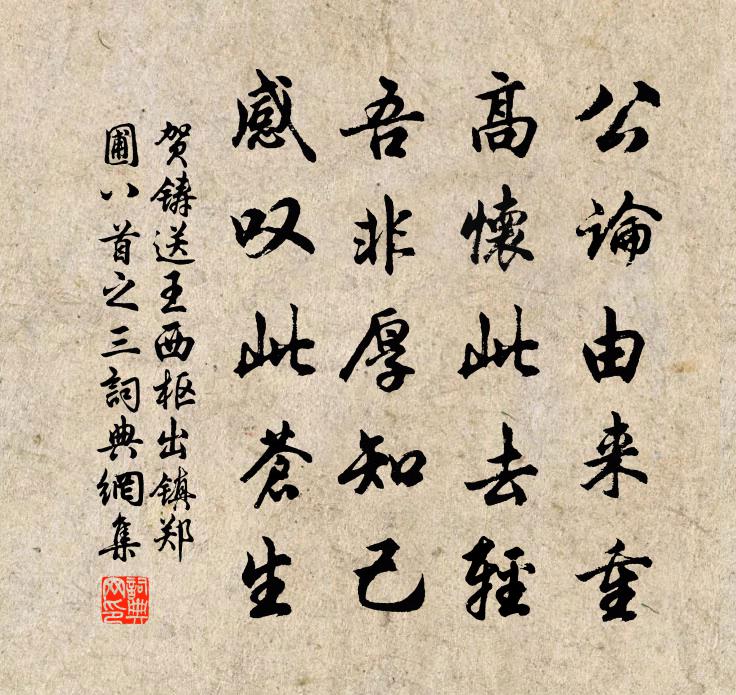 公論由来重
高懷此去輕
吾非厚知己
感叹此蒼生
贺铸送王西枢出镇郑
圃八首之三詞典網集
詞典
网印